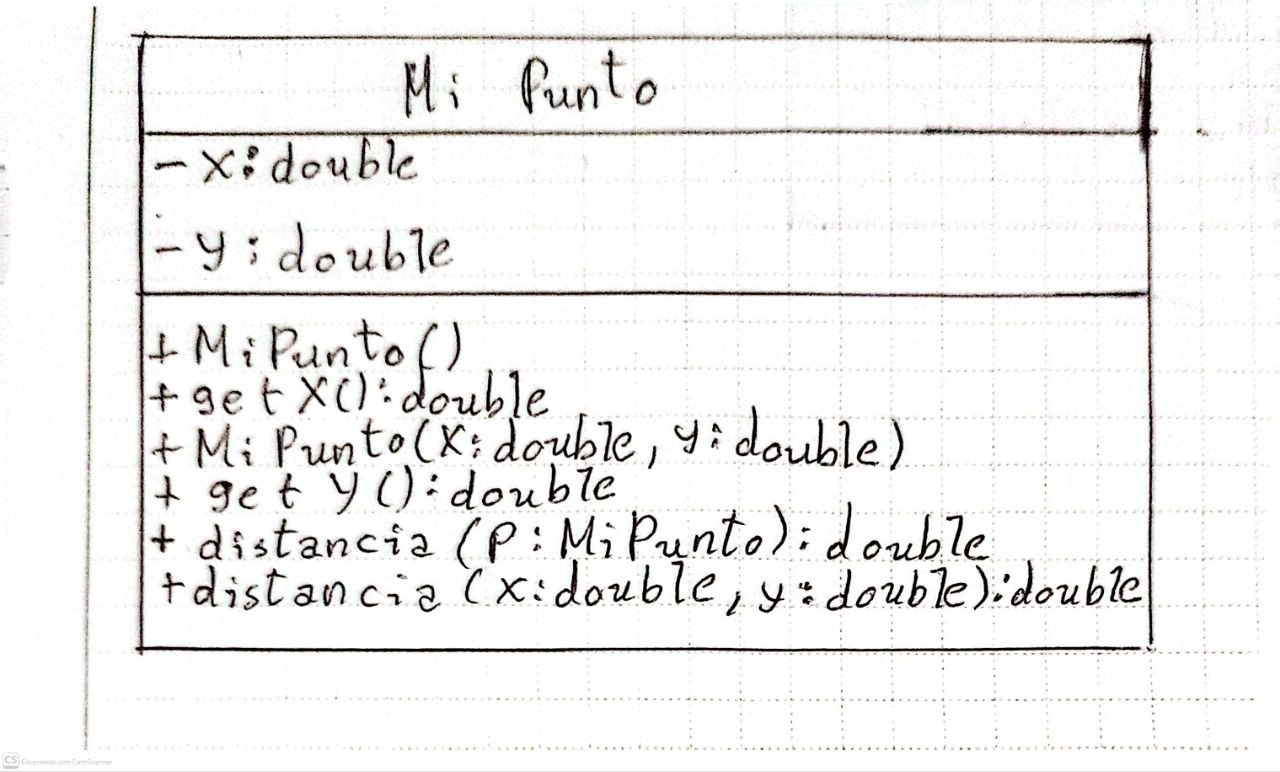 Mi Punto
- X: double
- y: double
+ MiPunto()
+ getX(): double
+ MiPunto(X: double, y: double)
+ get y(): double
+ distancia (P: MiPunto): double
+ distancia (x: double, y: double): double
CS Escaneado con CamScanner